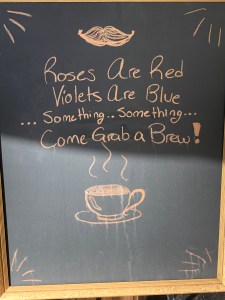 Roses Are Red
Violets Are Blue
...Something..Something...
Come Grab a Brew!